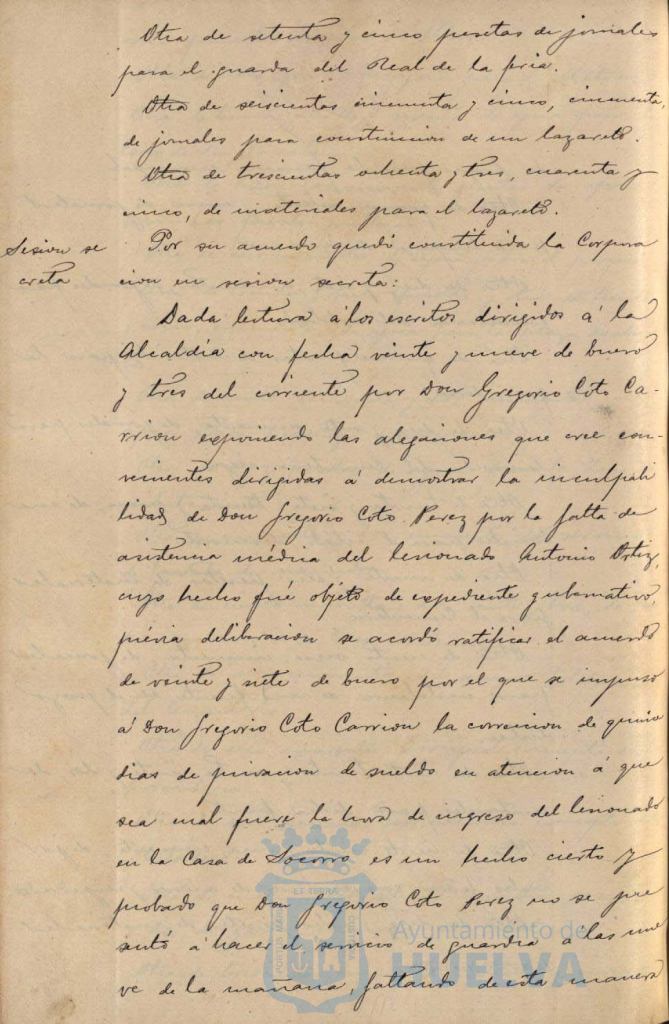 Otra de setenta y cinco pesetas de jornales
para el guarda del Real de la feria.
Otra de seiscientas cincuenta y cinco, cincuenta,
de jornales para construccion de un lazareto.
Otra de trescientas ochenta y tres, cuarenta y
cinco, de materiales para el lazareto.
Sesion se
creta
Por su acuerdo quedó constituida la Corpora
cion en sesion secreta:
Dada lectura á los escritos dirigidos á la
Alcaldía con fecha veinte y nueve de Enero
y tres del corriente por Don Gregorio Coto Ca-
rrion exponiendo las alegaciones que cree con-
venientes dirigidas á demostrar la inculpabi
lidad de Don Gregorio Coto Perez por la falta de
asistencia médica del lesionado Antonio Ortiz,
cuyo hecho fué objeto de expediente gubernativo,
prévia deliberacion se acordó ratificar el acuerdo
de veinte y siete de Enero por el que se impuso
á Don Gregorio Coto Carrion la correccion de quince
dias de privacion de sueldo en atencion á que
sea cual fuere la hora de ingreso del lesionado
en la Casa de Socorro es un hecho cierto y
probado que Don Gregorio Coto Perez no se pre
sentó á hacer el servicio de guardia a las nue
ve de la mañana, faltando de esta manera
Ayuntamiento de
HUELVA